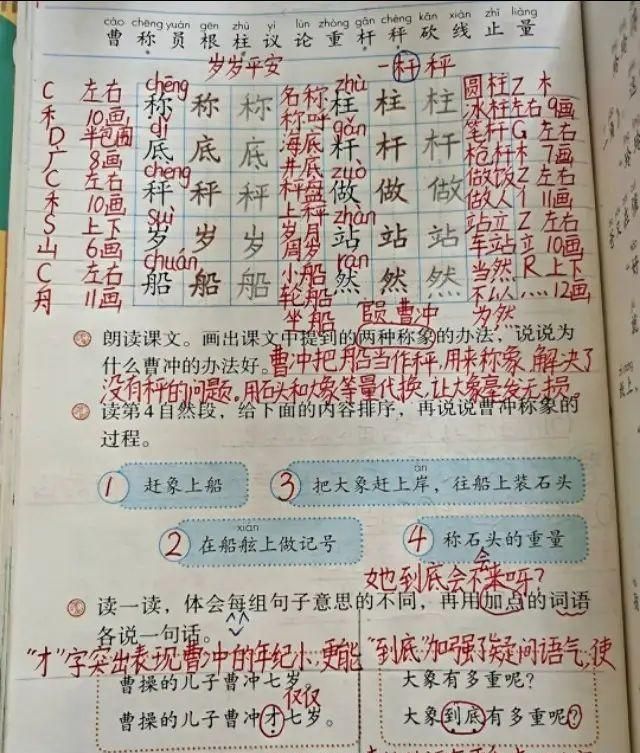 cáo chēng yuán gēn zhù yì lùn zhòng gǎn chèng kǎn xiàn zhǐ liàng
曹称员根柱议论重杆秤砍线止量
岁岁平安 一杆秤
C 左右 chēng 称称称 名称 zhù 柱柱柱 圆柱 Z 木
禾 10画 称呼 冰柱 左右 9画
D 半包围 dǐ 底底底 海底 gǎn 杆杆杆 笔杆 G 左右
广 8画 井底 枪杆 木 7画
C 左右 chèng 秤秤秤 秤盘 zuò 做做做 做饭 Z 左右
禾 10画 上秤 做人 亻 11画
S 上下 suì 岁岁岁 岁月 zhàn 站站站 站立 Z 左右
山 6画 周岁 车站 立 10画
C 左右 chuán 船船船 小船 rán 然然然 当然 R 上下
舟 11画 轮船 不以 灬 12画
坐船 官员 曹冲 为然
朗读课文。画出课文中提到的两种称象的办法，说说为
什么曹冲的办法好。曹冲把船当作秤，用来称象，解决了
没有秤的问题。用石头和大象等量代换，让大象毫发无损。
读第4自然段，给下面的内容排序，再说说曹冲称象的
过程。
1 赶象上船
àn
3 把大象赶上岸，往船上装石头
xián
2 在船舷上做记号
4 称石头的重量
她到底会不会来呀？
读一读，体会每组句子意思的不同，再用加点的词语
各说一句话。
"才"字突出表现曹冲的年纪小，更能
"到底"加强了疑问语气，使
曹操的儿子曹冲七岁。
仅仅
曹操的儿子曹冲才七岁。
大象有多重呢？
大象到底有多重呢？